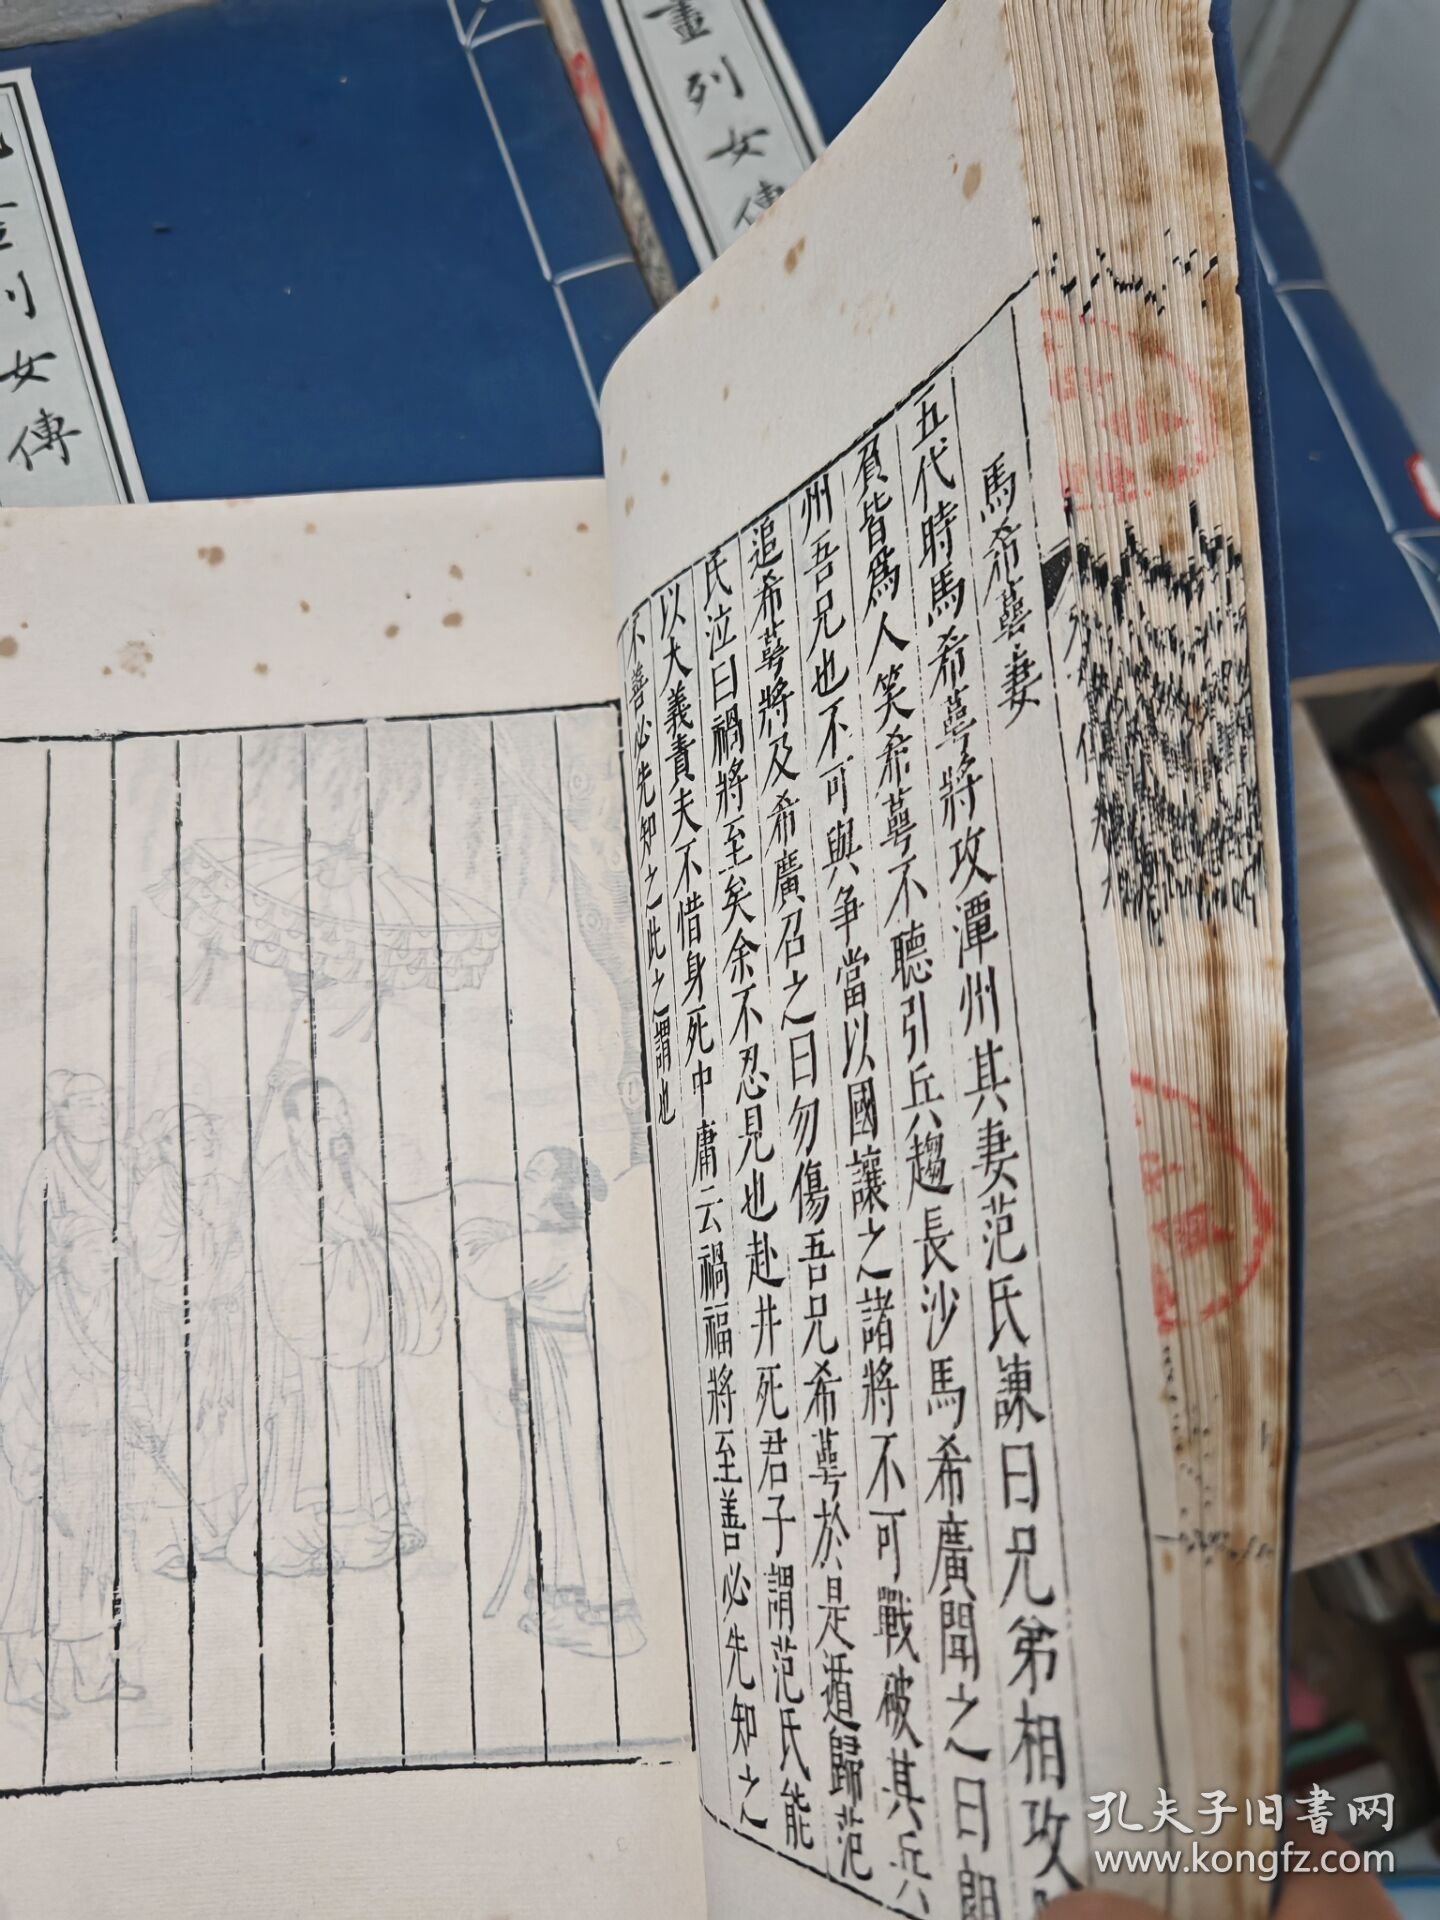 馬希萼妻
五代時馬希萼將攻潭州其妻范氏諫曰兄弟相攻
負皆爲人笑希萼不聽引兵趨長沙馬希廣聞之曰朗
州吾兄也不可與争當以國讓之諸將不可戰破其兵
追希萼將及希廣召之曰勿傷吾兄希萼於是遁歸范
氏泣曰禍將至矣余不忍見也赴井死君子謂范氏能
以大義責夫不惜身死中庸云禍福將至善必先知之
不善必先知之此之謂也
畫列女傳
列女傳
孔夫子旧書网
www.kongfz.com